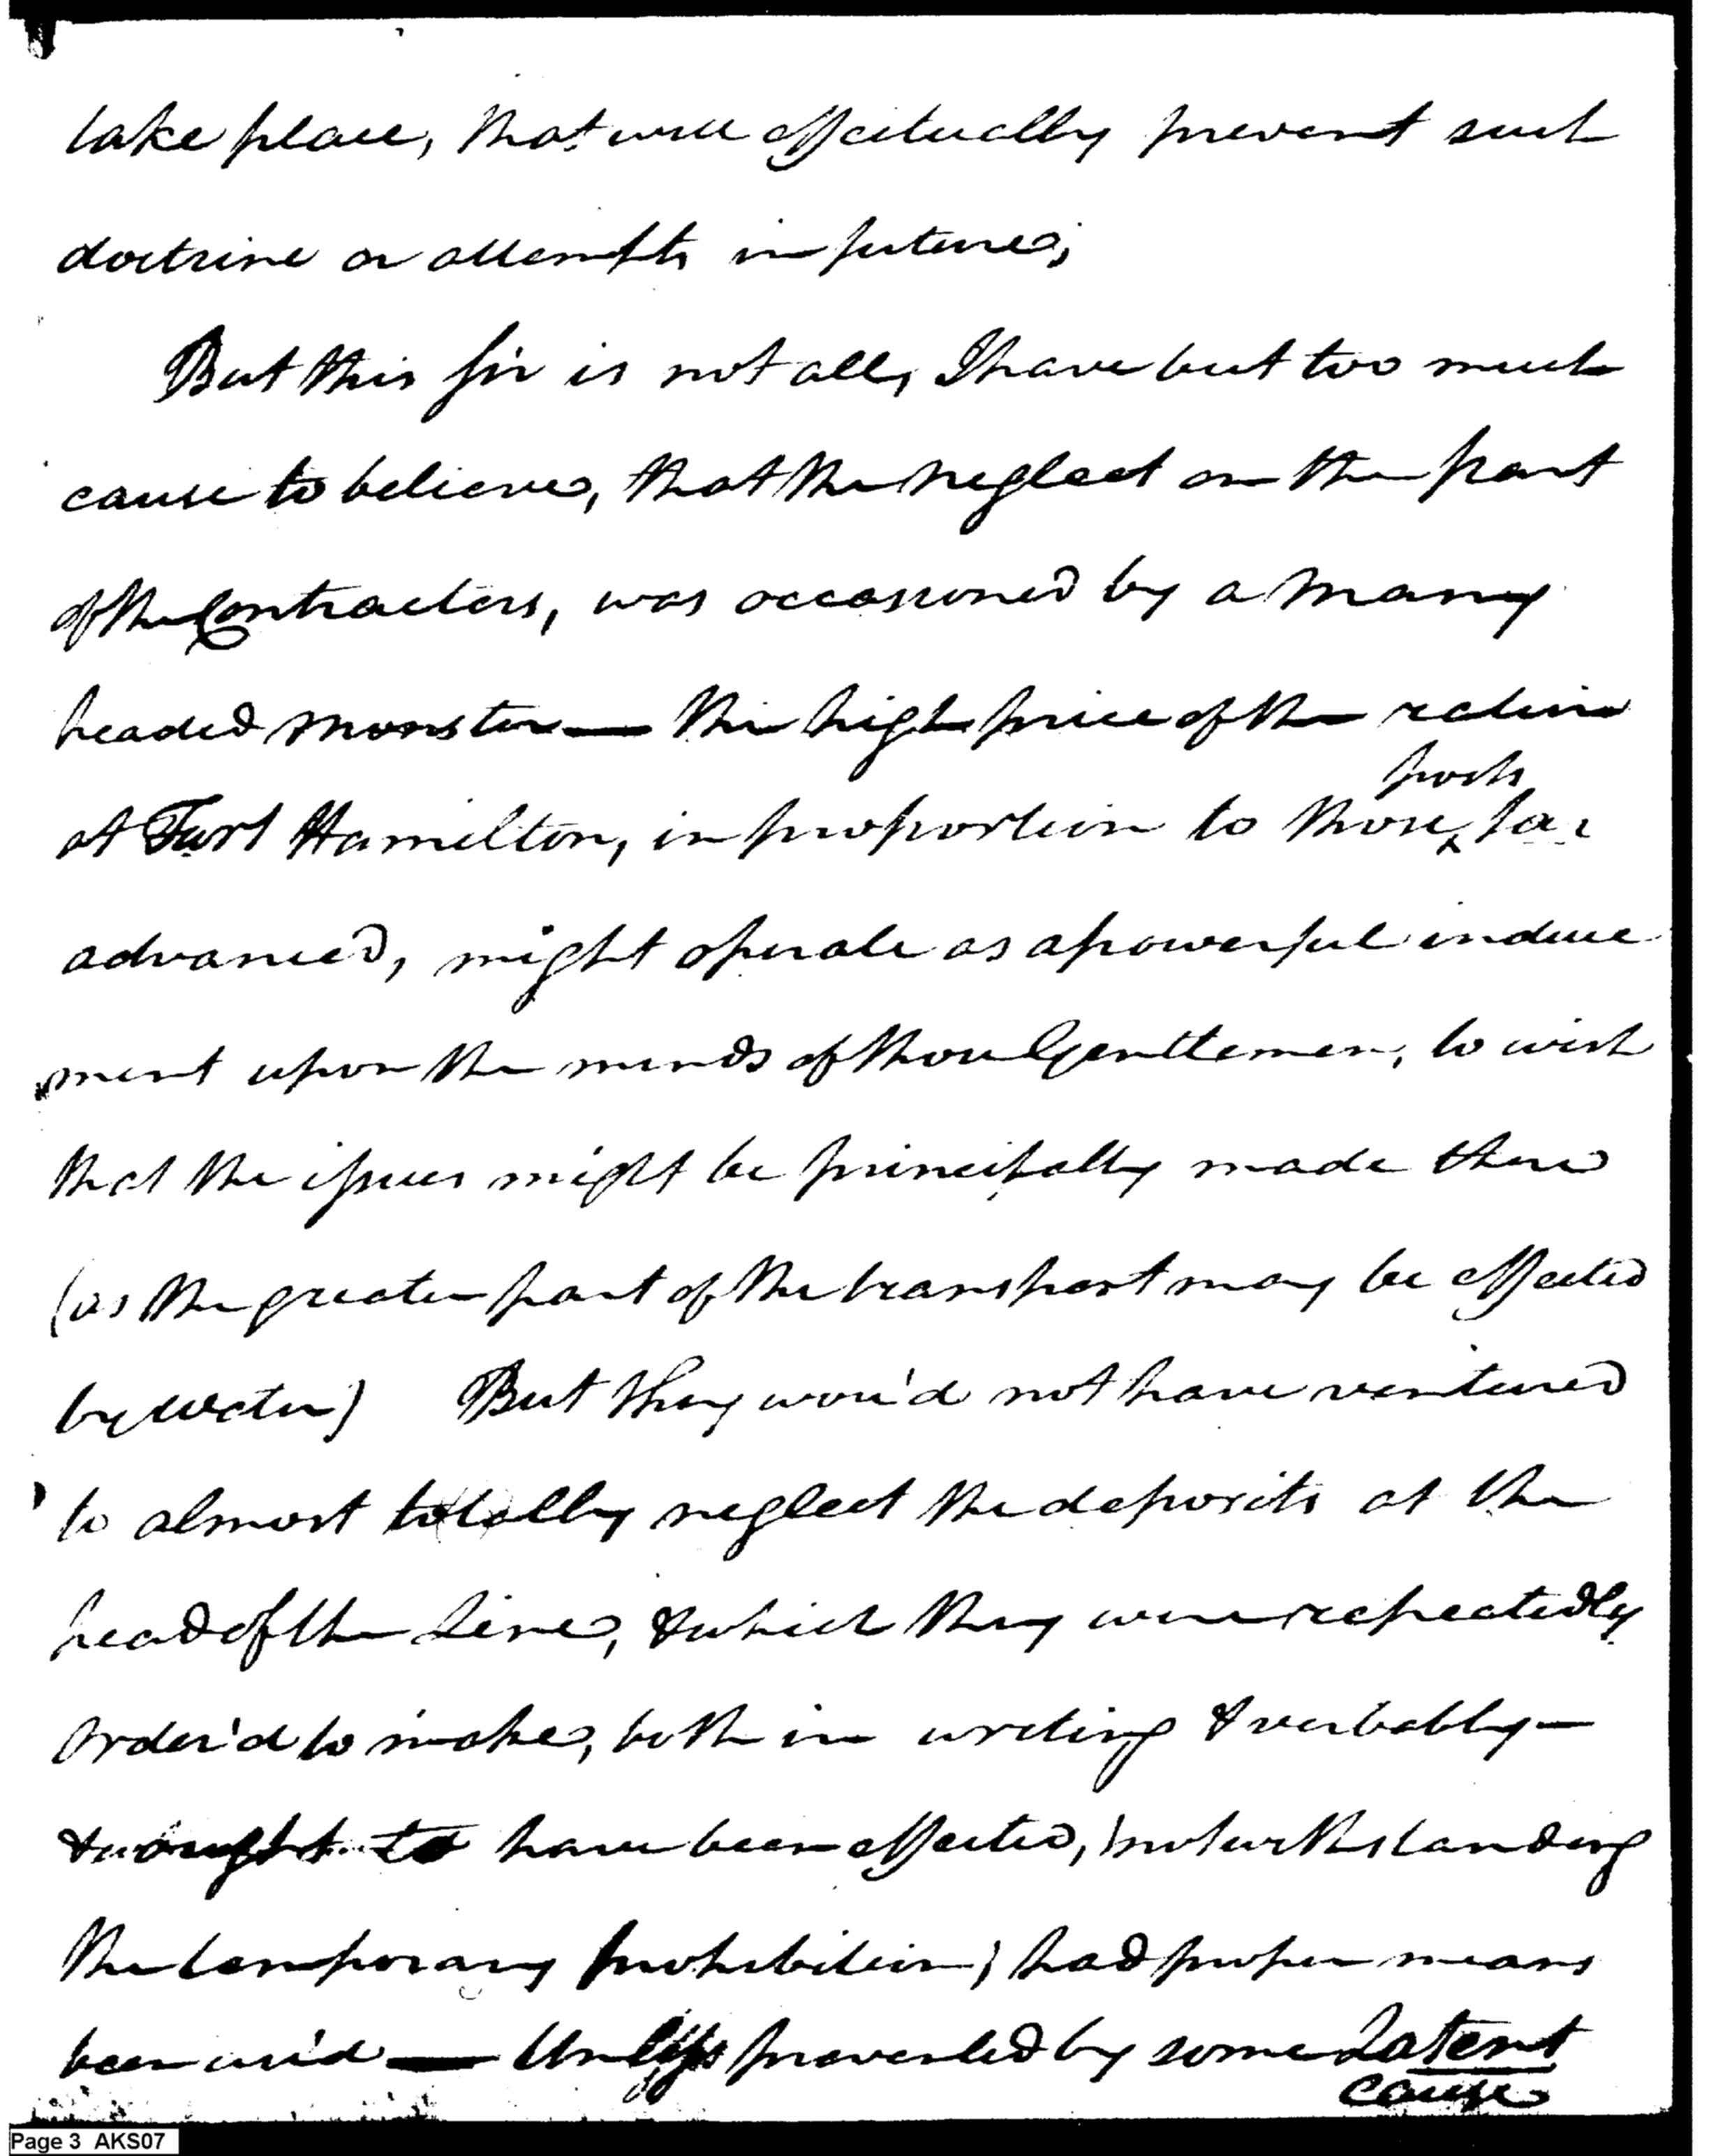 take place, that will effectually prevent such
doctrine or attempts in future;
But this Sir is not all, I have but too much
cause to believe, that the neglect on the part
of the Contractors, was occasioned by a many
headed monster — the high price of the ration
posts
at Fort Hamilton, in proportion to those ^ far
advanced, might operate as a powerful induce
ment upon the minds of those Gentlemen, to wish
that the issues might be principally made there
(as the greater part of the transport may be effected
by water) But they wou'd not have ventured
to almost totally neglect the deposits at the
head of the Line, & which they were repeatedly
order'd to make, both in writing & verbally —
& ought to have been effected, (notwithstanding
the temporary prohibition) had proper means
been us'd — Unless prevented by some Latent
cause
Page 3 AKS07